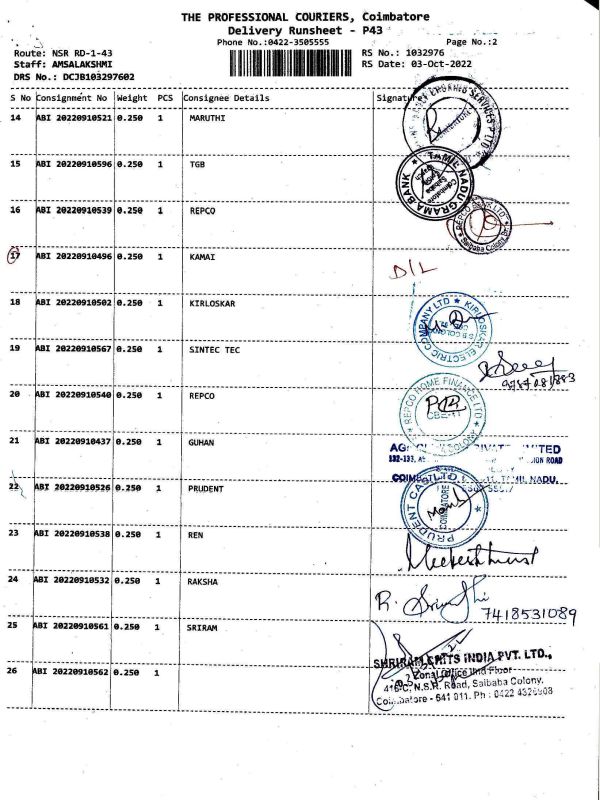 THE PROFESSIONAL COURIERS, Coimbatore
Delivery Runsheet - P43
Phone No.:0422-3505555
Page No.:2
Route: NSR RD-1-43
RS No.: 1032976
Staff: AMSALAKSHMI
RS Date: 03-Oct-2022
DRS No.: DCJB103297602
S No Consignment No Weight PCS Consignee Details Signature
14 ABI 20220910521 0.250 1 MARUTHI
15 ABI 20220910596 0.250 1 TGB
TAMIL NADU GRAMA BANK
16 ABI 20220910539 0.250 1 REPCO
REPCO BANK LTD
Saibaba Colony
17 ABI 20220910496 0.250 1 KAMAI
D/L
18 ABI 20220910502 0.250 1 KIRLOSKAR
KIRLOSKAR ELECTRIC COMPANY LTD
19 ABI 20220910567 0.250 1 SINTEC TEC
20 ABI 20220910540 0.250 1 REPCO
REPCO HOME FINANCE LTD
21 ABI 20220910437 0.250 1 GUHAN
22 ABI 20220910526 0.250 1 PRUDENT
PRUDENT
COIMBATORE
23 ABI 20220910538 0.250 1 REN
24 ABI 20220910532 0.250 1 RAKSHA
7418531089
25 ABI 20220910561 0.250 1 SRIRAM
INDIA PVT. LTD.,
Zonal Office IInd Floor
416-C, N.S.R. Road, Saibaba Colony,
Coimbatore - 641 011. Ph : 0422
26 ABI 20220910562 0.250 1